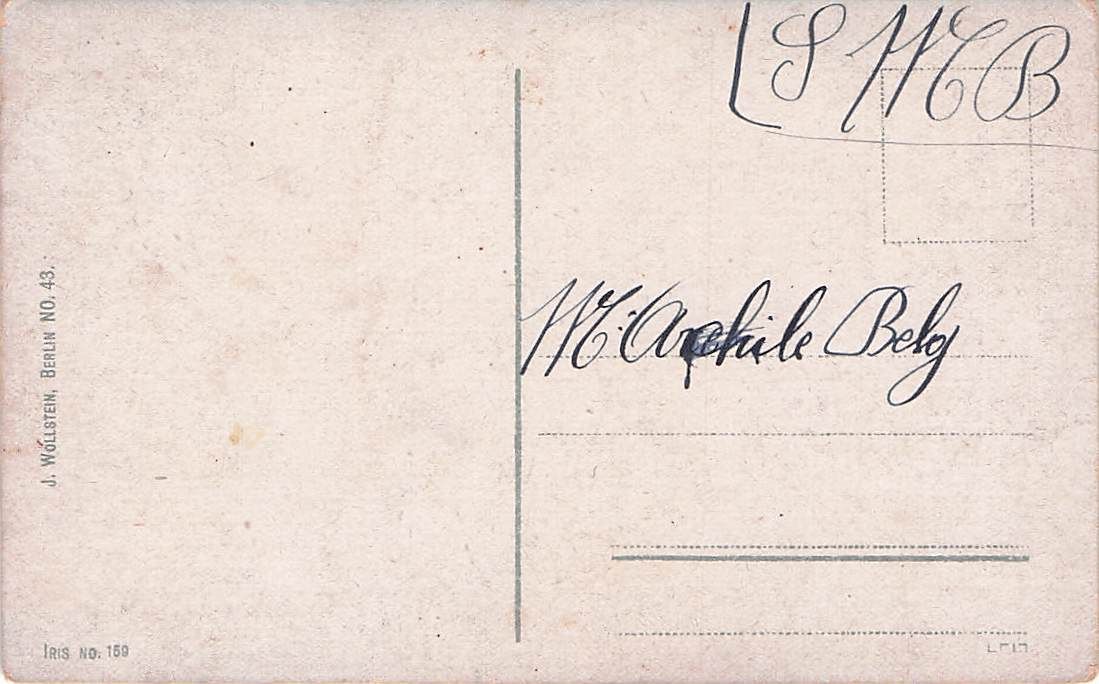 S M B
J. WOLLSTEIN, BERLIN NO. 43.
Mr. Archile Belg
IRIS NO. 159